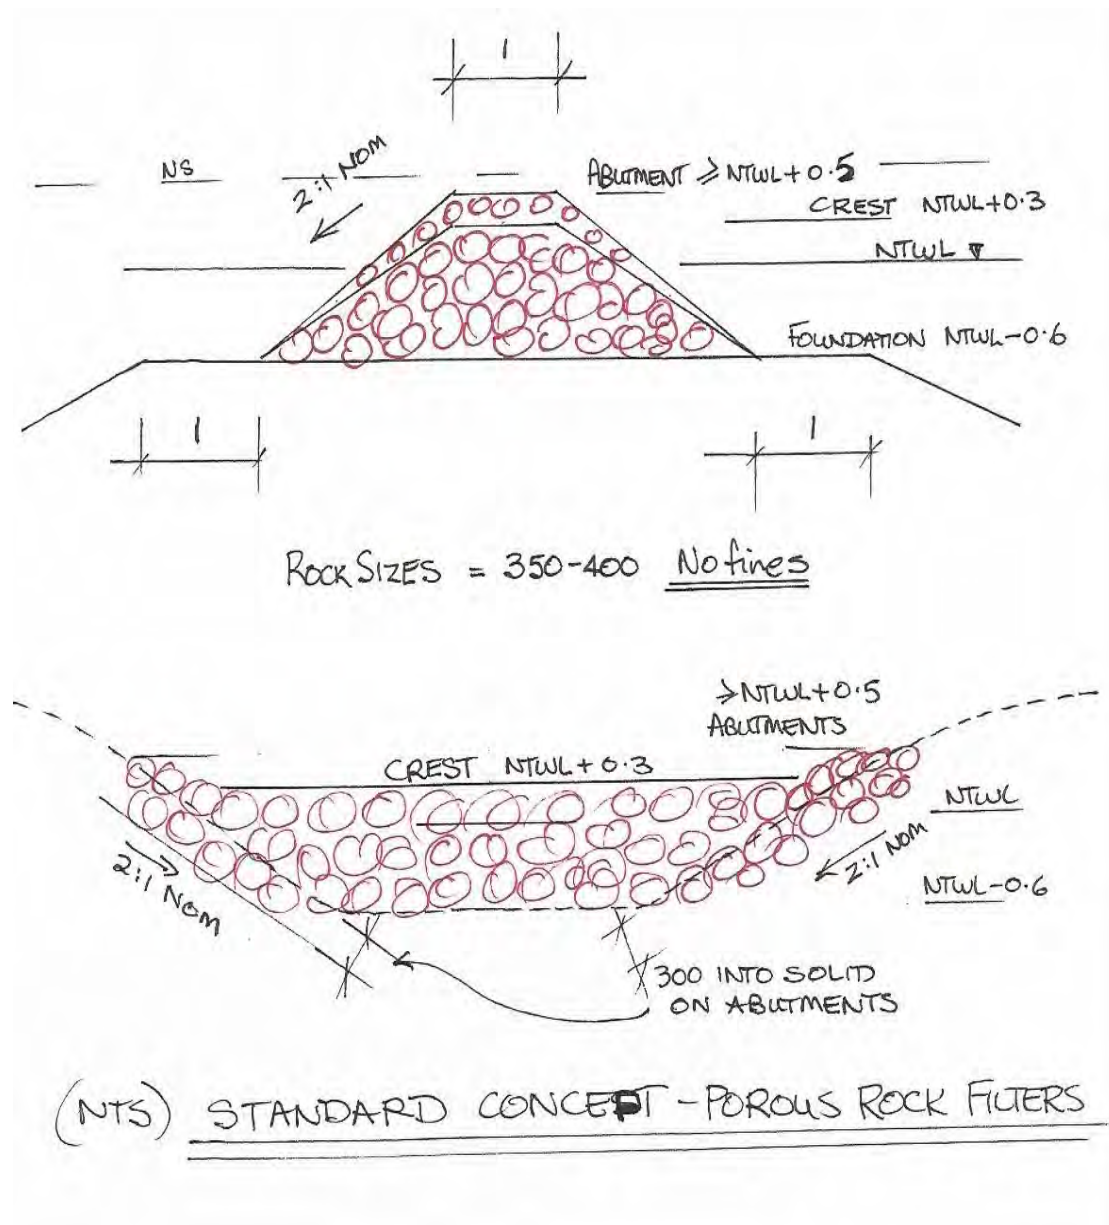 1
NS
2:1 NOM
ABUTMENT ≥ NTWL+0.5
CREST NTWL+0.3
NTWL
FOUNDATION NTWL-0.6
1
1
ROCK SIZES = 350-400 No fines
≥NTWL+0.5
ABUTMENTS
CREST NTWL+0.3
NTWL
2:1 NOM
2:1 NOM
NTWL-0.6
300 INTO SOLID
ON ABUTMENTS
(NTS) STANDARD CONCEPT - POROUS ROCK FILTERS